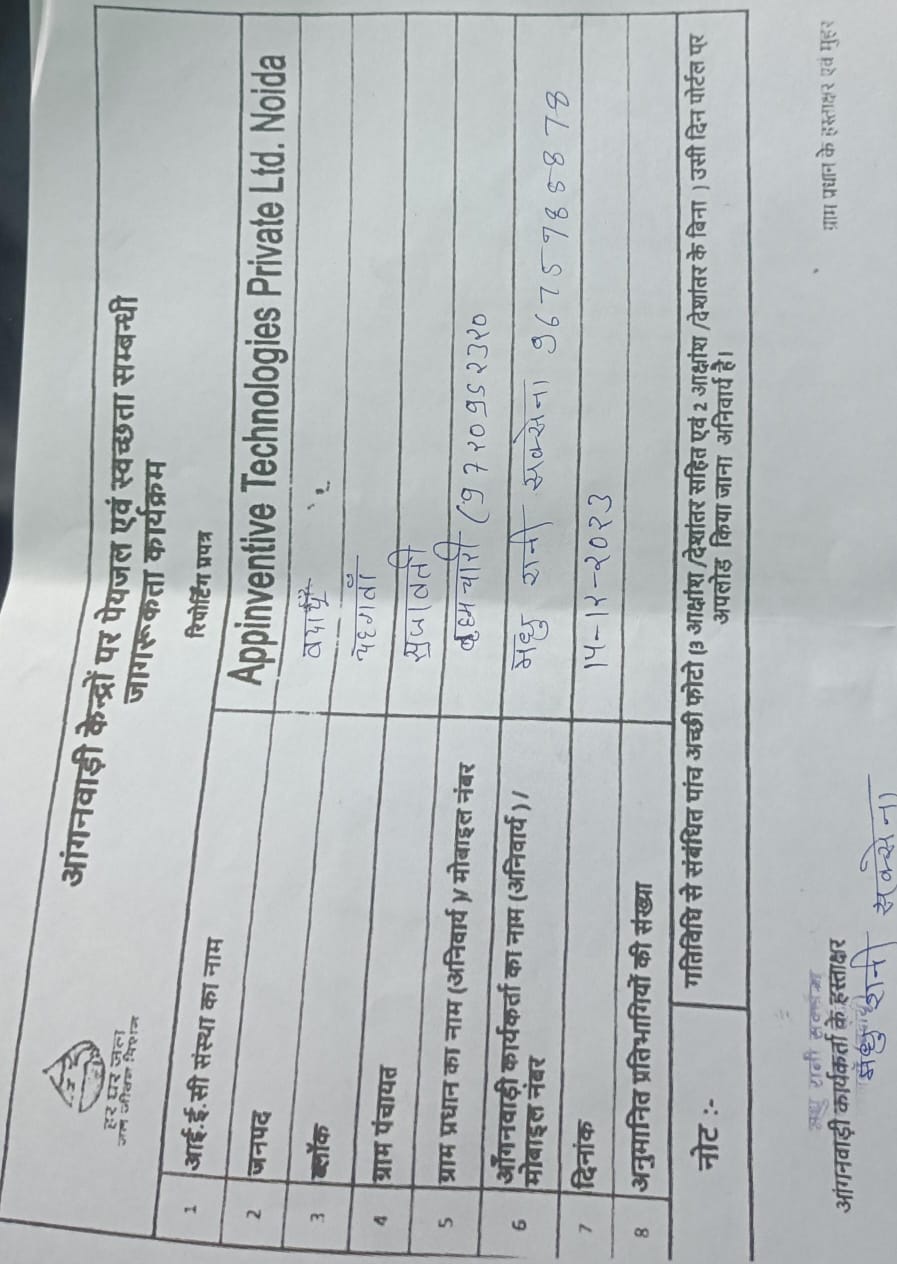 हर घर जल
जल जीवन मिशन
आंगनवाड़ी केन्द्रों पर पेयजल एवं स्वच्छता सम्बन्धी
जागरूकता कार्यक्रम
रिपोर्टिंग प्रपत्र
1 आई.ई.सी संस्था का नाम Appinventive Technologies Private Ltd. Noida
2 जनपद बदायूँ
3 ब्लॉक
4 ग्राम पंचायत
5 ग्राम प्रधान का नाम (अनिवार्य )/ मोबाइल नंबर
6 आँगनवाड़ी कार्यकर्ता का नाम (अनिवार्य ) / मधु रानी सक्सेना
मोबाइल नंबर
7 दिनांक
8 अनुमानित प्रतिभागियों की संख्या
नोट :- गतिविधि से संबंधित पांच अच्छी फोटो (3 आक्षांश /देशांतर सहित एवं 2 आक्षांश /देशांतर के विना ) उसी दिन पोर्टल पर
अपलोड किया जाना अनिवार्य है।
आंगनवाड़ी कार्यकर्ता के हस्ताक्षर ग्राम प्रधान के हस्ताक्षर एवं मुहर
मधु रानी सक्सेना